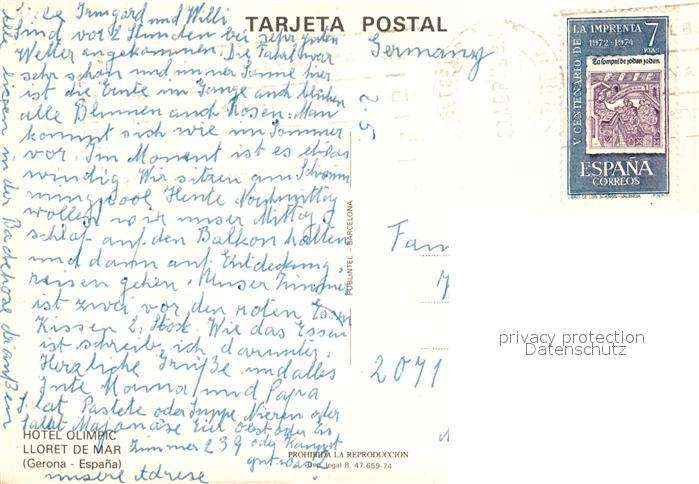 TARJETA POSTAL
Liebe Irmgard und Willi
Sind vor 2 Stunden bei sehr guten
Wetter angekommen. Die Fahrt war
sehr schön und immer Sonne hier
ist die Ernte im Gange auch blühen
alle Blumen auch Rosen. Man
kommt sich wie im Sommer
vor. Im Moment ist es etwas
windig. Wir sitzen am Schwimm
mingpool. Heute Nachmittag
wollen wir unser Mittag
schlaf auf den Balkon halten
und dann auf Entdeckung
reisen gehen. Unser Zimmer
ist zwei vor den roten
Kissen 2. Stock. Wie das Essen
ist schreib ich darunter.
Herzliche Grüße und alles
Gute Mama und Papa
Salat Pastete oder Suppe Nieren oder
Salat Majonäse Eier Obst oder Eis
Zimmer 239
unsere Adrese
alle liegen in der Badehose draußen
HOTEL OLIMPIC
LLORET DE MAR
(Gerona - España)
PUBLINTEL - BARCELONA
PROHIBIDA LA REPRODUCCION
Dep. legal B. 47.659-74
Germany
Fam
2071
V CENTENARIO DE LA IMPRENTA
1972-1974
7
PTAS
ESPAÑA
CORREOS
F.N.M.T.
privacy protection
Datenschutz